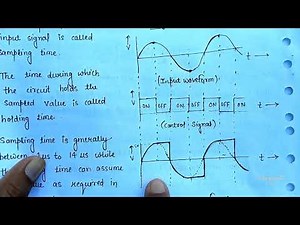 input signal is called
Sampling time.
The time during which
the circuit holds the
sampled value is called
holding time.
Sampling time is generally
between 1μs to 14 μs while
the
time can assume
as required in
t →
(Input waveform)
ON OFF ON OFF ON OFF ON
t →
(Control Signal)
t →